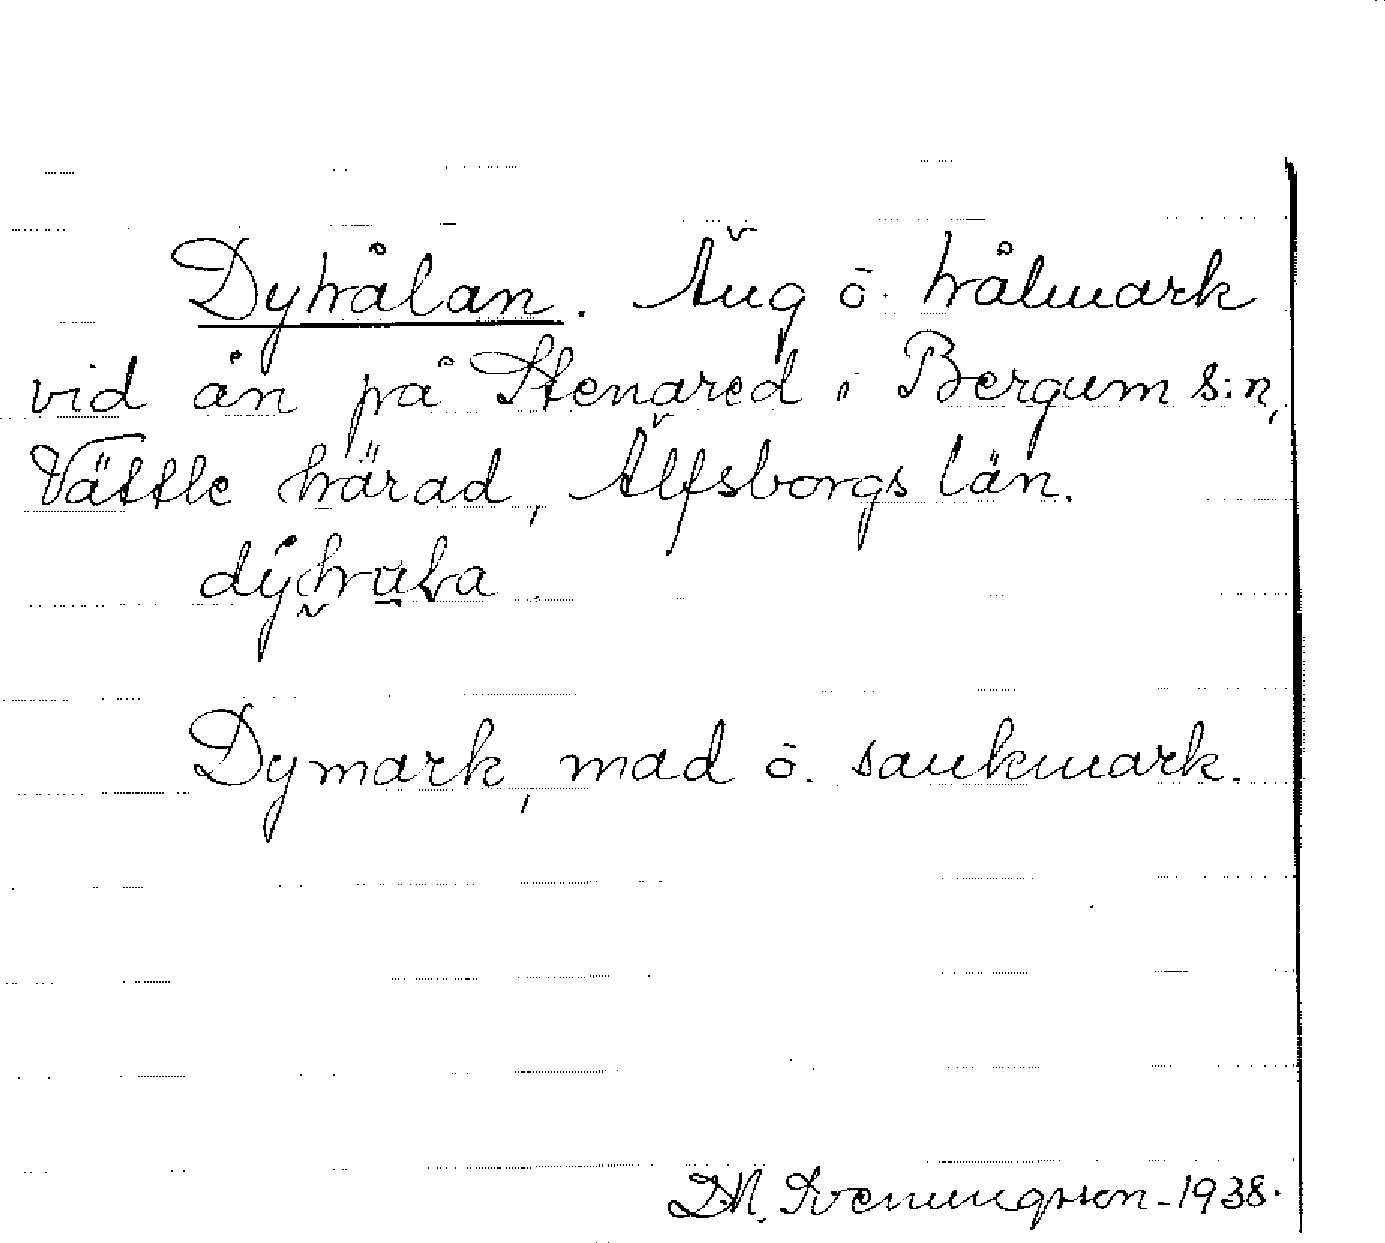 Dyhålan. Äng ō. hålmark
vid ån på Stenared i Bergum s:n,
Vättle härad, Älfsborgs län.
Dymark, mad ō. sankmark.
Svenningsson - 1938.